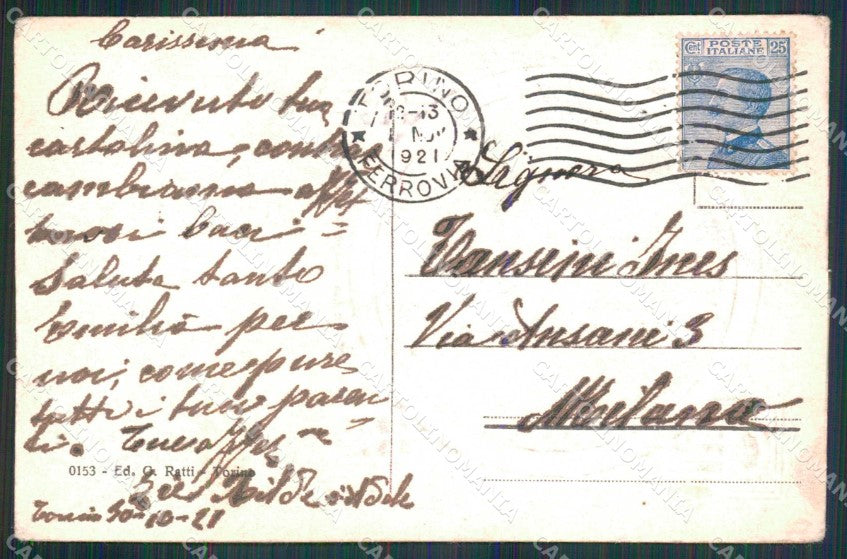 Carissima
Ricevuto tua
cartolina, contra
cambiamo affet
tuosi baci
saluta tanto
Emilia per
noi, come pure
tutti i tuoi paren
ti. Tue affme
Zie Nilde
Torino 30-10-21
0153 - Ed. G. Ratti - Torino
TORINO
FERROVIA
NOV
1921
POSTE
ITALIANE
Cent 25
Signora
Vansini Ines
Via Ansani 3
Milano
CARTOLINOMANIA